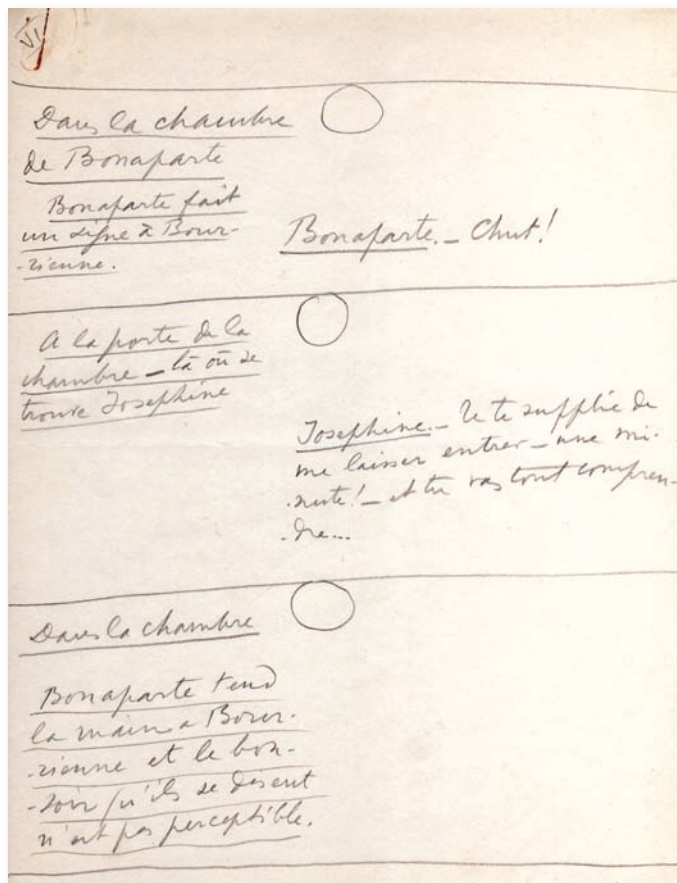 VI
Dans la chambre
de Bonaparte
Bonaparte fait
un signe à Bour-
-rienne.
Bonaparte._ Chut!
A la porte de la
chambre _ là où se
trouve Josephine
Josephine._ Je te supplie de
me laisser entrer _ une mi-
-nute! _ et tu vas tout compren-
-dre...
Dans la chambre
Bonaparte tend
la main a Bour-
-rienne et le bon-
-soir qu'ils se disent
n'est pas perceptible.